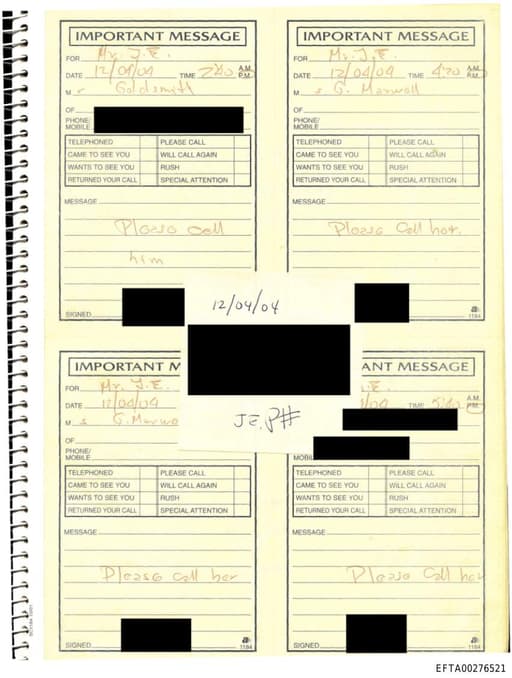 IMPORTANT MESSAGE
FOR Mr. J.E.
DATE 12/04/04 TIME 2:40 A.M. P.M.
M r Goldsmith
OF
PHONE/
MOBILE
TELEPHONED PLEASE CALL
CAME TO SEE YOU WILL CALL AGAIN
WANTS TO SEE YOU RUSH
RETURNED YOUR CALL SPECIAL ATTENTION
MESSAGE
Please call
him
SIGNED
IMPORTANT MESSAGE
FOR Mr. J.E.
DATE 12/04/04 TIME 4:20 A.M. P.M.
M s G. Maxwell
OF
PHONE/
MOBILE
TELEPHONED PLEASE CALL
CAME TO SEE YOU WILL CALL AGAIN
WANTS TO SEE YOU RUSH
RETURNED YOUR CALL SPECIAL ATTENTION
MESSAGE
Please Call her.
SIGNED
1184
12/04/04
JE. P#
IMPORTANT M
FOR Mr. J.E.
DATE 12/04/04
M s G. Maxwe
OF
PHONE/
MOBILE
TELEPHONED PLEASE CALL
CAME TO SEE YOU WILL CALL AGAIN
WANTS TO SEE YOU RUSH
RETURNED YOUR CALL SPECIAL ATTENTION
MESSAGE
Please call her
SIGNED
1184
ANT MESSAGE
.E.
/04 TIME 5:40 A.M. P.M.
MOBIL
TELEPHONED PLEASE CALL
CAME TO SEE YOU WILL CALL AGAIN
WANTS TO SEE YOU RUSH
RETURNED YOUR CALL SPECIAL ATTENTION
MESSAGE
Please Call her
SIGNED
1184
EFTA00276521